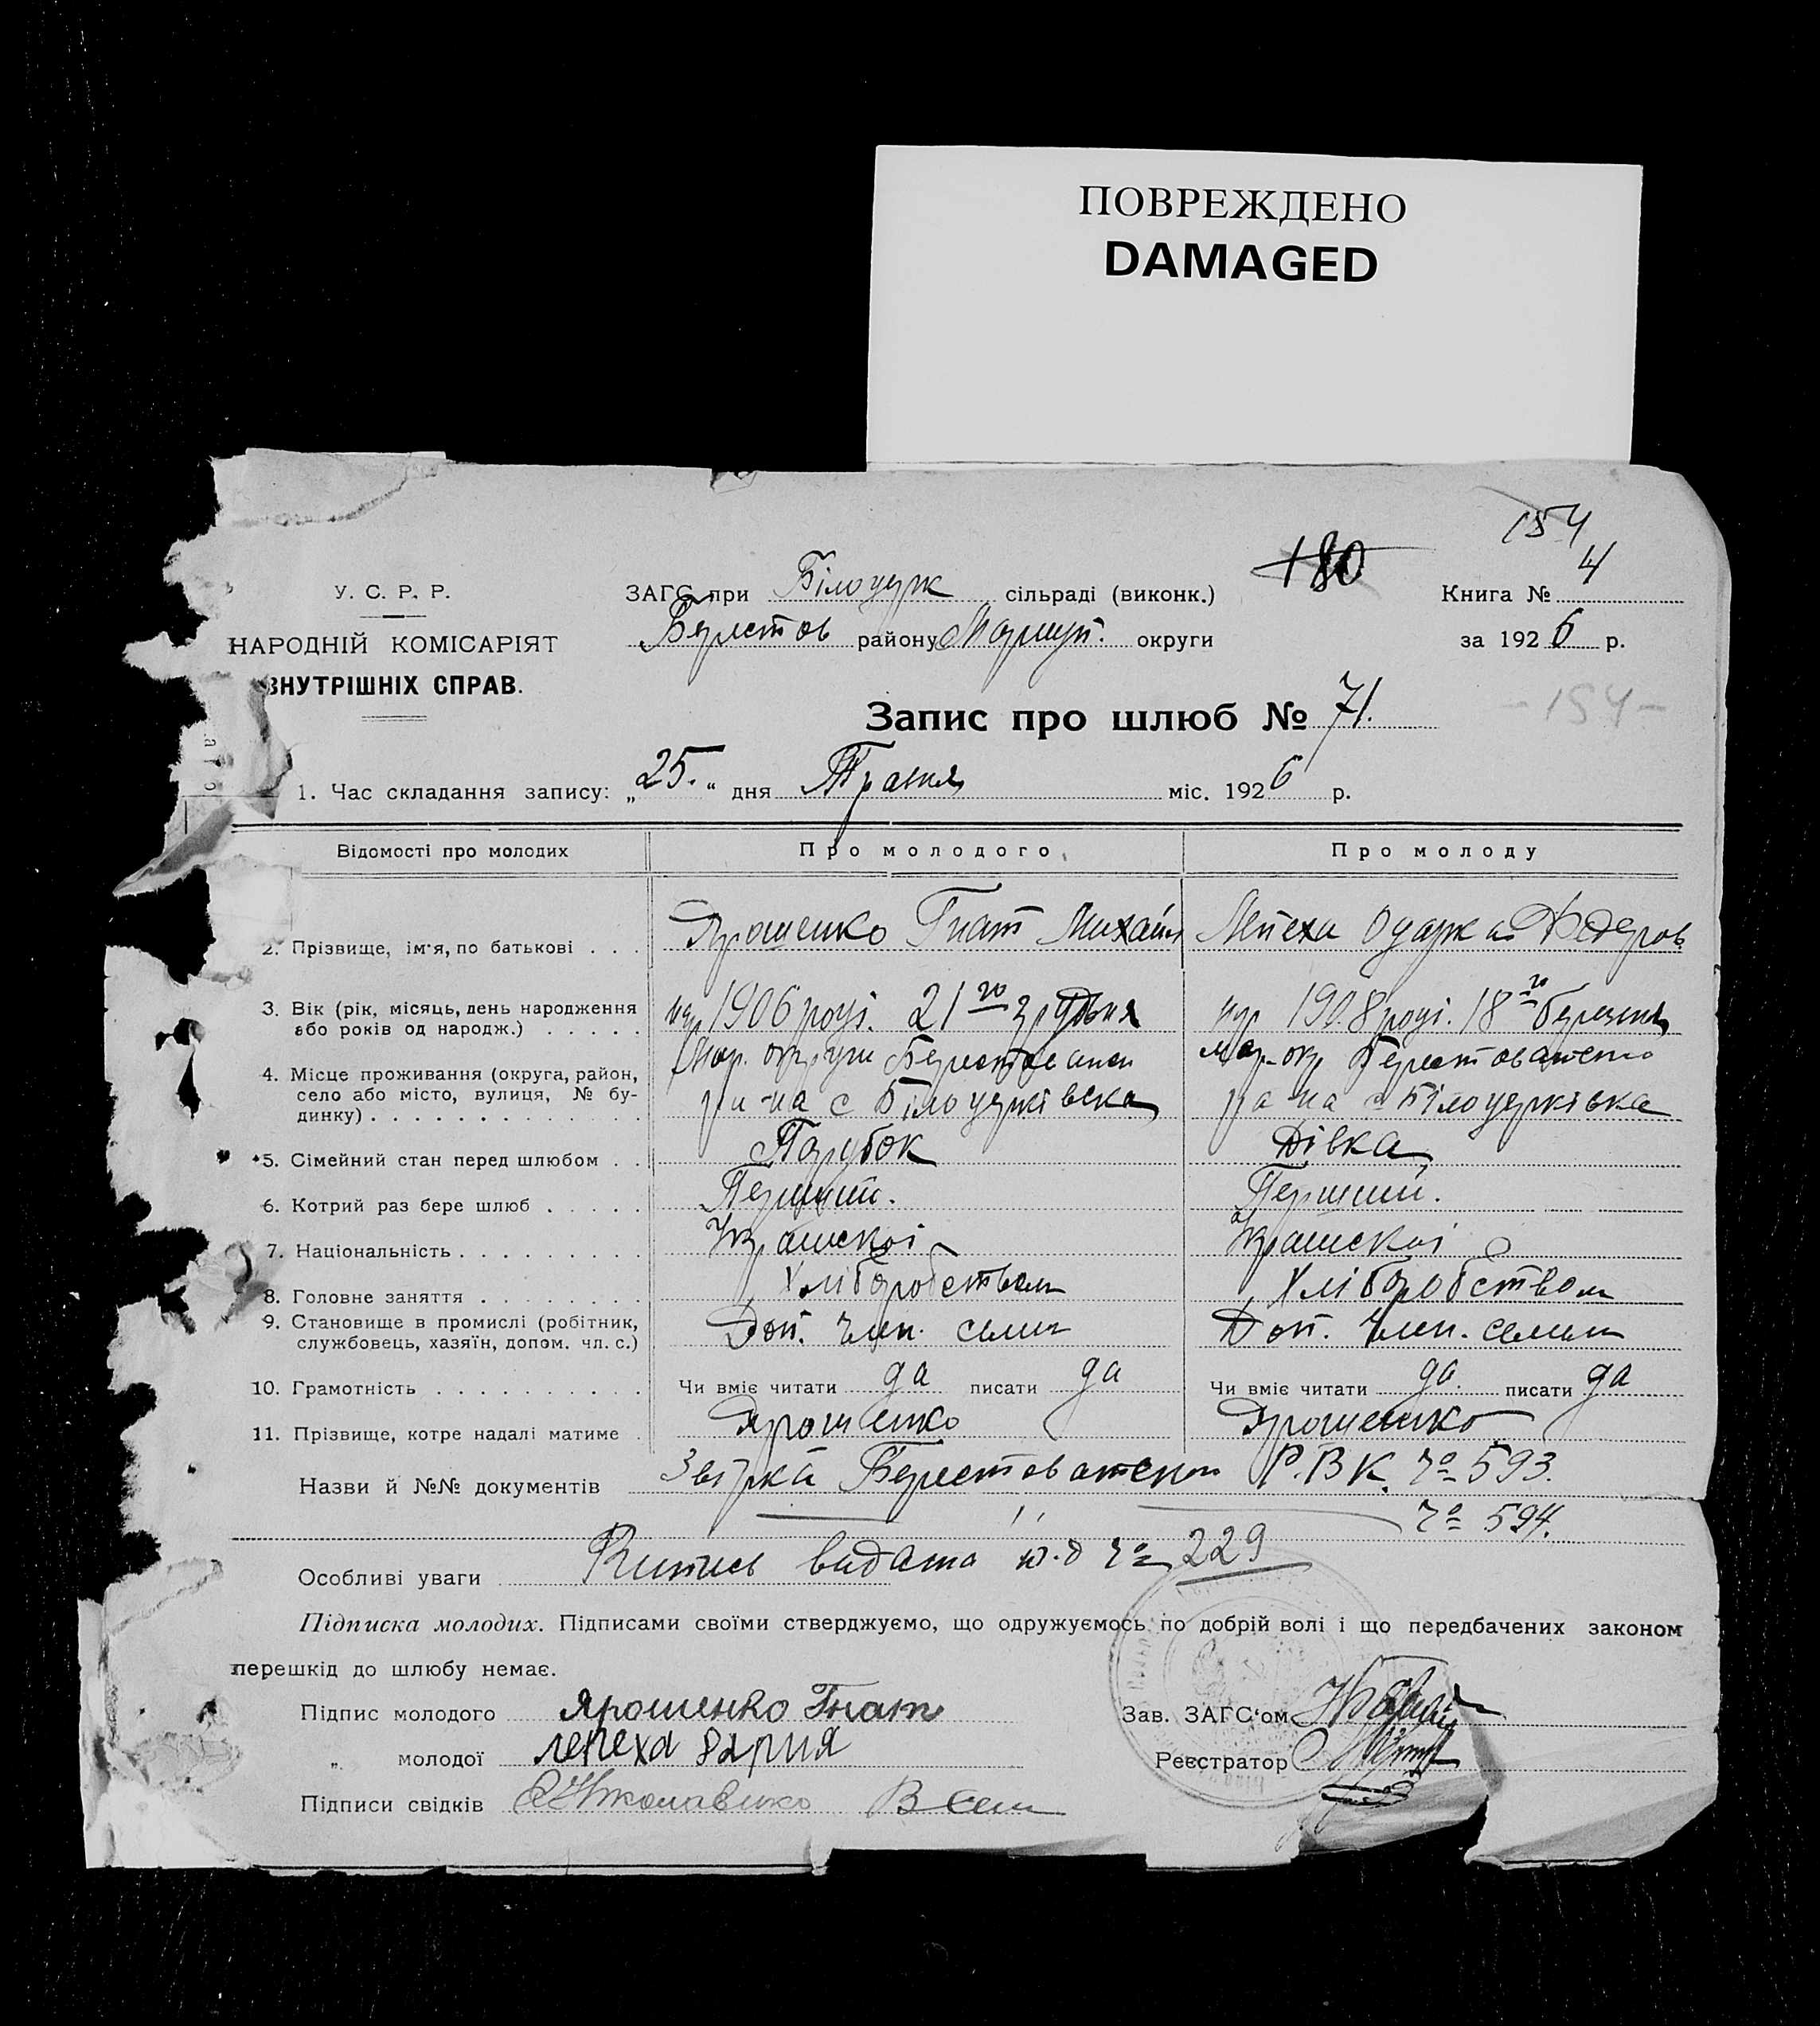 ПОВРЕЖДЕНО
DAMAGED
154
У. С. Р. Р.
ЗАГС при Білоцерк сільраді (виконк.) 180 Книга № 4
НАРОДНІЙ КОМІСАРІЯТ
Берестов району Маріуп. округи за 1926 р.
ВНУТРІШНІХ СПРАВ.
Запис про шлюб № 71.
-154-
1. Час складання запису: „25.“ дня Травня міс. 1926 р.
Відомості про молодих Про молодого Про молоду
2. Прізвище, ім'я, по батькові . . . Ярошенко Гнат Михайл Лепеха Одарка Федоров
3. Вік (рік, місяць, день народження нар 1906 році. 21го грудьня нар 1908 році. 18го березня
або років од народж.) . . . . .
4. Місце проживання (округа, район, Мар. округи Берестован мар-окр Берестоватсько
село або місто, вулиця, № бу- ра-на с Білоцерківка ра-на с Білоцерківка
динку) . . . . . . . . . . . .
5. Сімейний стан перед шлюбом . . Парубок Дівка
6. Котрий раз бере шлюб . . . . . Перший. Перший.
7. Національність . . . . . . . . . Українскоі Українскоі
8. Головне заняття . . . . . . . . Хліборобством Хліборобством
9. Становище в промислі (робітник, Доп. член. семи Доп. член. семьи
службовець, хазяїн, допом. чл. с.)
10. Грамотність . . . . . . . . . . Чи вміє читати да писати да Чи вміє читати да. писати да
11. Прізвище, котре надалі матиме . Ярошенко Ярошенко
Назви й №№ документів Звірка Берестоватског Р.В.К. Чо 593.
Чо 594.
Особливі уваги Випись видана п.д Чо 229
Підписка молодих. Підписами своїми стверджуємо, що одружуємось по добрій волі і що передбачених законом
перешкід до шлюбу немає.
Підпис молодого Ярошенко Гнат Зав. ЗАГС'ом
„ молодої лепеха дария Реєстратор
Підписи свідків